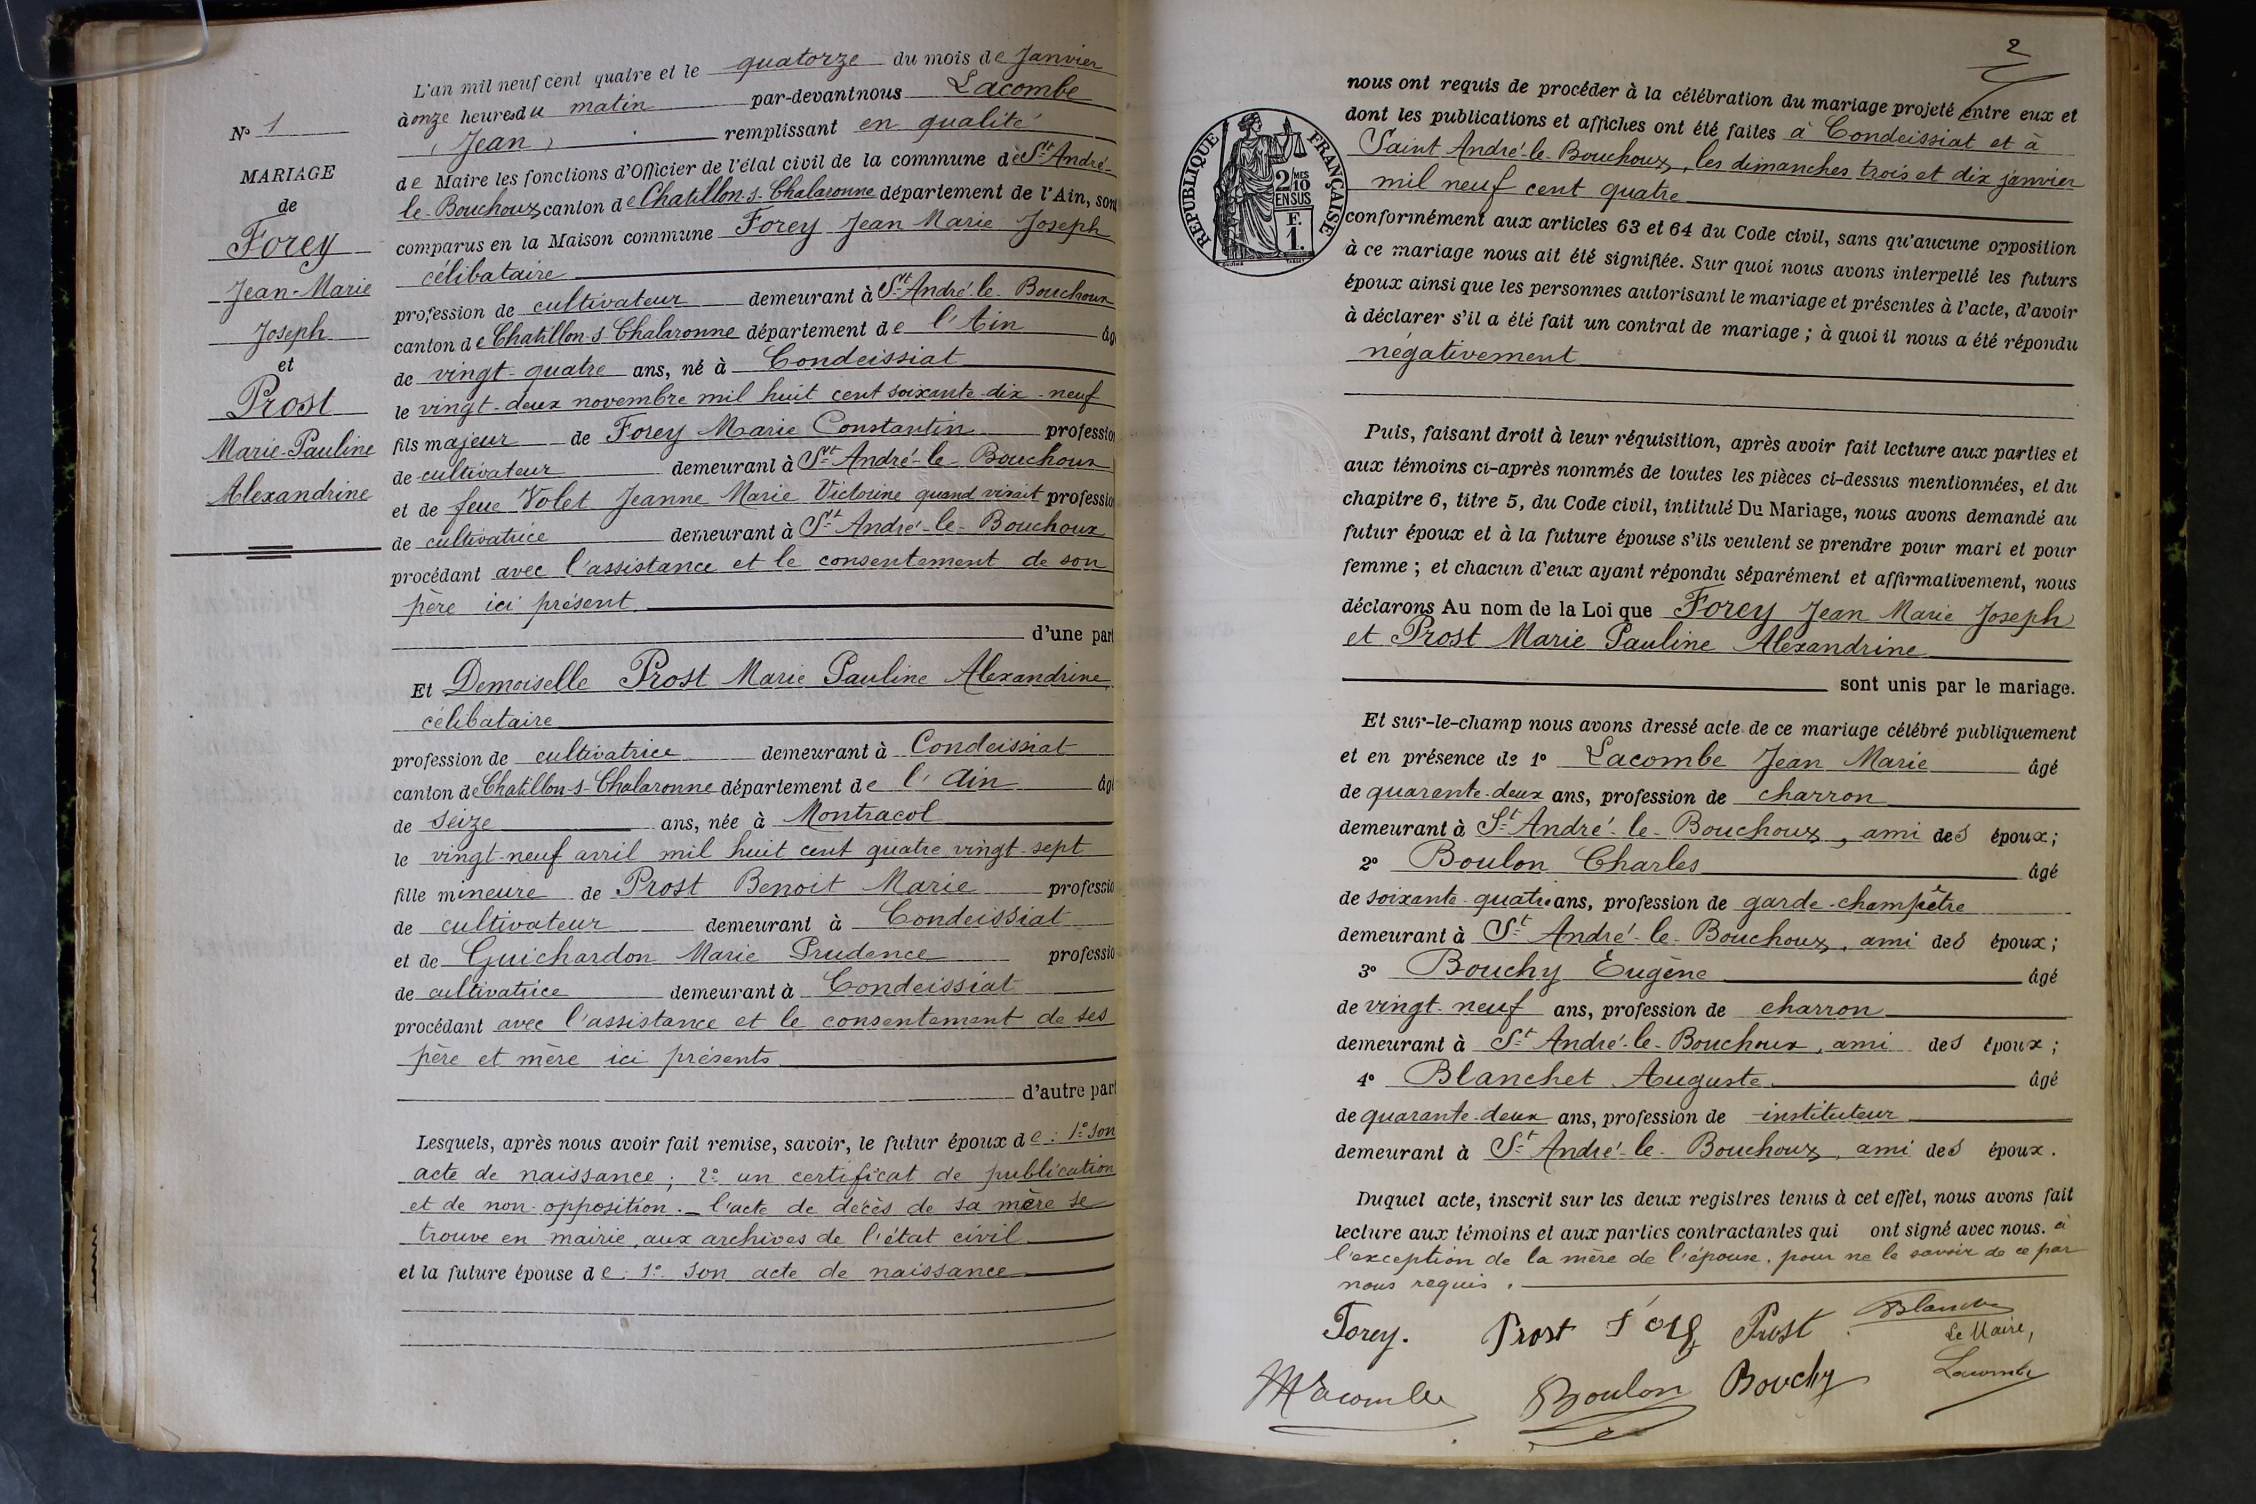 N° 1
MARIAGE
de
Forey
Jean-Marie
Joseph
et
Prost
Marie-Pauline
Alexandrine
L'an mil neuf cent quatre et le quatorze du mois de Janvier
à onze heures du matin par-devant nous Lacombe
(Jean) remplissant en qualité
de Maire les fonctions d'Officier de l'état civil de la commune de St André-
le-Bouchoux canton de Chatillon-s-Chalaronne département de l'Ain, sont
comparus en la Maison commune Forey Jean Marie Joseph
célibataire
profession de cultivateur demeurant à St André-le-Bouchoux
canton de Chatillon-s-Chalaronne département de l'Ain âg
de vingt-quatre ans, né à Condeissiat
le vingt-deux novembre mil huit cent soixante-dix-neuf
fils majeur de Forey Marie Constantin profession
de cultivateur demeurant à St André-le-Bouchoux
et de feue Volet Jeanne Marie Victorine quand vivait professio
de cultivatrice demeurant à St André-le-Bouchoux
procédant avec l'assistance et le consentement de son
père ici présent.
d'une part
Et Demoiselle Prost Marie Pauline Alexandrine,
célibataire
profession de cultivatrice demeurant à Condeissiat
canton de Chatillon-s-Chalaronne département de l'Ain âgé
de seize ans, née à Montracol
le vingt-neuf avril mil huit cent quatre vingt-sept
fille mineure de Prost Benoit Marie professio
de cultivateur demeurant à Condeissiat
et de Guichardon Marie Prudence professio
de cultivatrice demeurant à Condeissiat
procédant avec l'assistance et le consentement de ses
père et mère ici présents
d'autre part
Lesquels, après nous avoir fait remise, savoir, le futur époux de : 1° son
acte de naissance ; 2° un certificat de publication
et de non-opposition. — l'acte de décès de sa mère se
trouve en mairie, aux archives de l'état civil
et la future épouse de : 1° son acte de naissance
2
RÉPUBLIQUE FRANÇAISE
2 MES
10
EN SUS
E.
1.
nous ont requis de procéder à la célébration du mariage projeté entre eux et
dont les publications et affiches ont été faites à Condeissiat et à
Saint André-le-Bouchoux, les dimanches trois et dix janvier
mil neuf cent quatre
conformément aux articles 63 et 64 du Code civil, sans qu'aucune opposition
à ce mariage nous ait été signifiée. Sur quoi nous avons interpellé les futurs
époux ainsi que les personnes autorisant le mariage et présentes à l'acte, d'avoir
à déclarer s'il a été fait un contrat de mariage ; à quoi il nous a été répondu
négativement
Puis, faisant droit à leur réquisition, après avoir fait lecture aux parties et
aux témoins ci-après nommés de toutes les pièces ci-dessus mentionnées, et du
chapitre 6, titre 5, du Code civil, intitulé Du Mariage, nous avons demandé au
futur époux et à la future épouse s'ils veulent se prendre pour mari et pour
femme ; et chacun d'eux ayant répondu séparément et affirmativement, nous
déclarons Au nom de la Loi que Forey Jean Marie Joseph
et Prost Marie Pauline Alexandrine
sont unis par le mariage.
Et sur-le-champ nous avons dressé acte de ce mariage célébré publiquement
et en présence de 1° Lacombe Jean Marie âgé
de quarante-deux ans, profession de charron
demeurant à St André-le-Bouchoux, ami des époux ;
2° Boulon Charles âgé
de soixante-quatre ans, profession de garde-champêtre
demeurant à St André-le-Bouchoux, ami des époux ;
3° Bouchy Eugène âgé
de vingt-neuf ans, profession de charron
demeurant à St André-le-Bouchoux, ami des époux ;
4° Blanchet Auguste âgé
de quarante-deux ans, profession de instituteur
demeurant à St André-le-Bouchoux, ami des époux.
Duquel acte, inscrit sur les deux registres tenus à cet effet, nous avons fait
lecture aux témoins et aux parties contractantes qui ont signé avec nous. à
l'exception de la mère de l'épouse, pour ne le savoir de ce par
nous requis.
Forey. Prost Prost Blanchet
Le Maire,
Lacombe Boulon Bouchy Lacombe